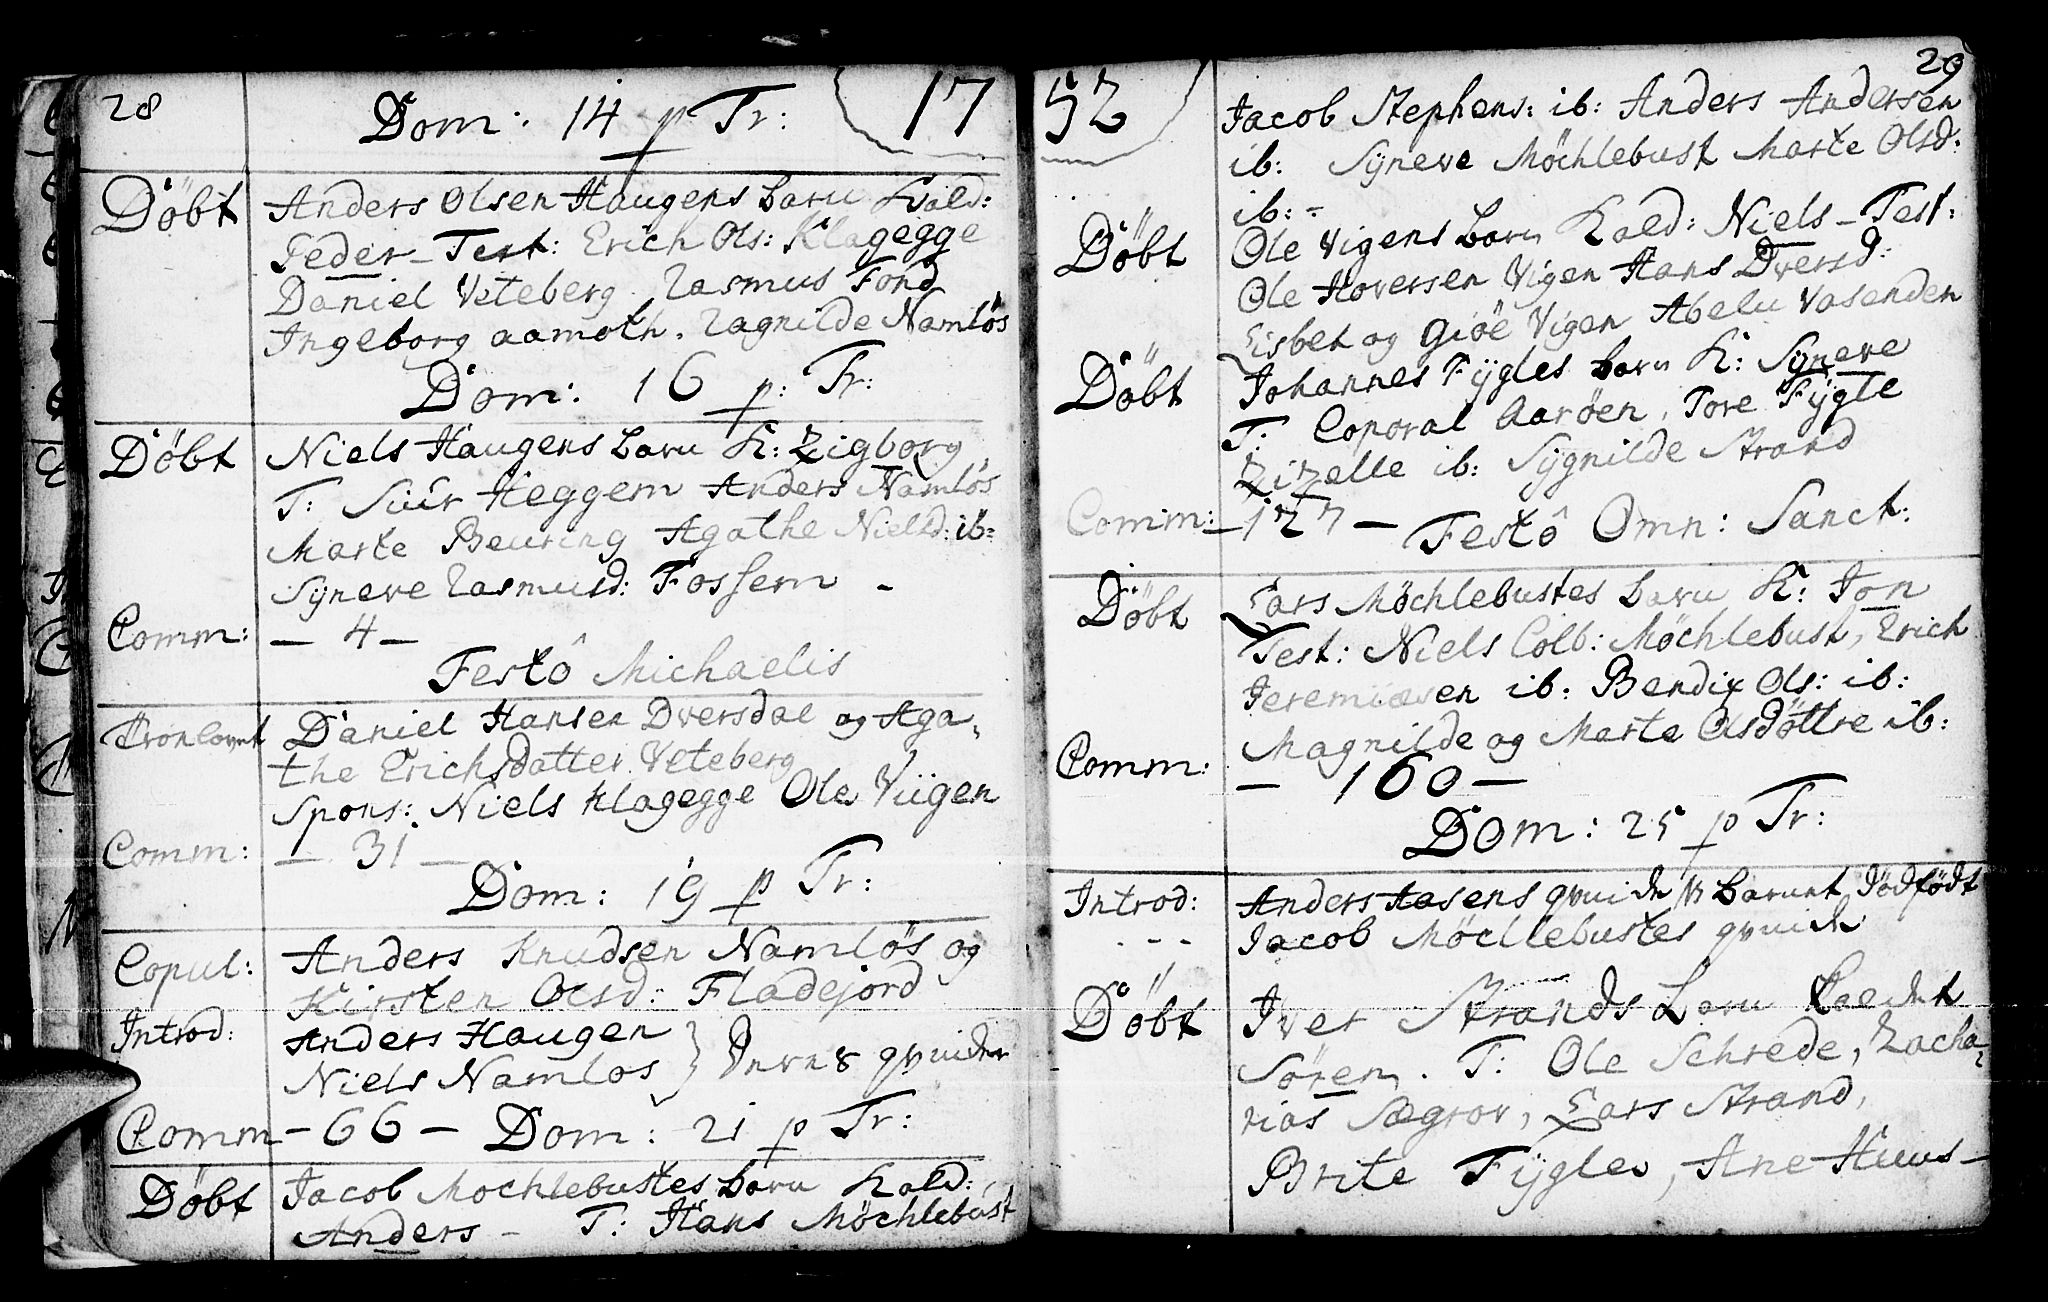 28
Dom: 14 p Tr:
17
Döbt
Anders Olsen Haugens barn kald:
Peder - Test: Erich Ols: Klagegge
Daniel Veteberg. Rasmus Fond
Ingeborg aamoth. Ragnilde Namlös
Dom: 16 p: Tr:
Döbt
Niels Haugens barn K: Zigborg
T: Siur Heggem Anders Namlös
Marte Beuring Agathe Nielsd: ib:
Syneve Rasmusd: Fossem -
Comm:
- 4 -
Festô Michaelis
Tronlovet
Daniel Hansen Dversdal og Aga-
the Erichsdatter Veteberg
Spons: Niels Klagegge Ole Viigen
Comm:
- 31 -
Dom: 19 p Tr:
Copul:
Anders Knudsen Namlös og
Kirsten Olsd: Fladejord
Introd:
Anders Haugen
Niels Namlos } qvinder
Comm - 66 - Dom: 21 p Tr:
Döbt
Jacob Mochlebustes barn kald:
Anders - T: Hans Möchlebust
52
29
Jacob Stephens: ib: Anders Andersen
ib: Syneve Möchlebust Marte Olsd:
ib: -
Döbt
Ole Vigens barn Kald: Niels - Test:
Ole Hoversen Vigen Hans Dversd:
Lisbet og Giöe Vigen Abelu Vasenden
Döbt
Johannes Fygles barn K: Syneve
T: Coporal Aaröen, Tore Fygle
Zizelle ib: Sygnilde Strand
Comm: - 127 - Festô Omn: Sanct:
Döbt
Lars Möchlebustes barn K: Jon
Test: Niels Colb: Möchlebust, Erich
Jeremiæsen ib: Bendix Ols: ib:
Magnilde og Marte Olsdöttre ib:
Comm:
- 160 -
Dom: 25 p Tr:
Introd:
Anders Aasens qvinde barnet dödfödt
- - -
Jacob Möchlebustes qvinde
Döbt
Iver Strands barn Kaldet
Sören. T: Ole Schrede, Zacha-
rias Sægrov, Lars Strand,
Brite Fygles, Ane Huus-